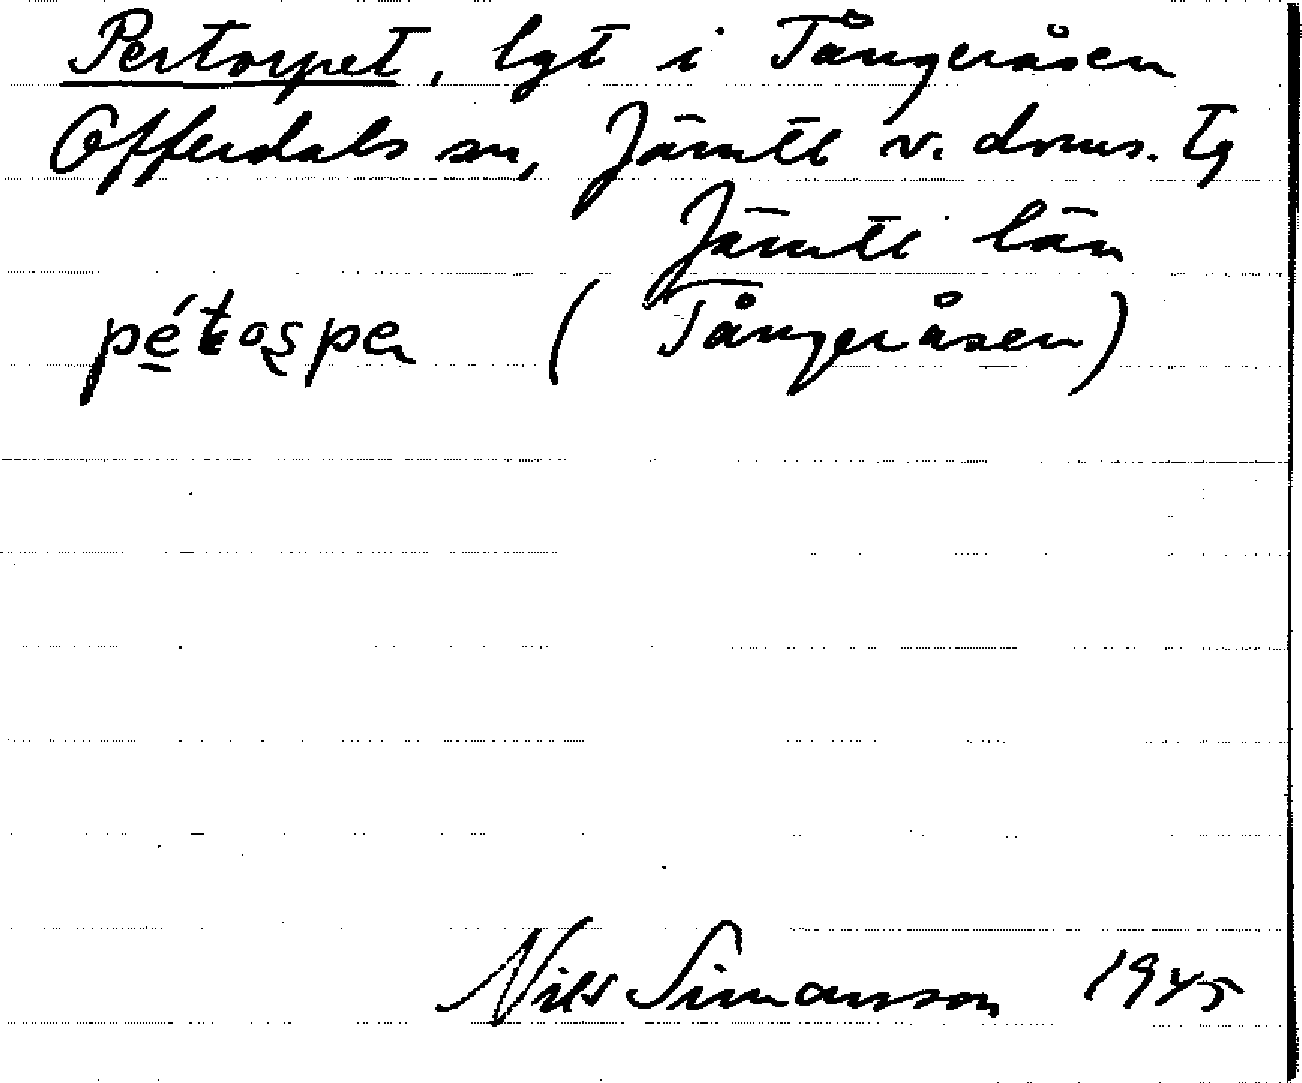 Pertorpet, lgt i Tångeråsen
Offerdals sn, Jämtl v. doms. tg
Jämtl län
pétospen (Tångeråsen)
Nils Simonsson 1945